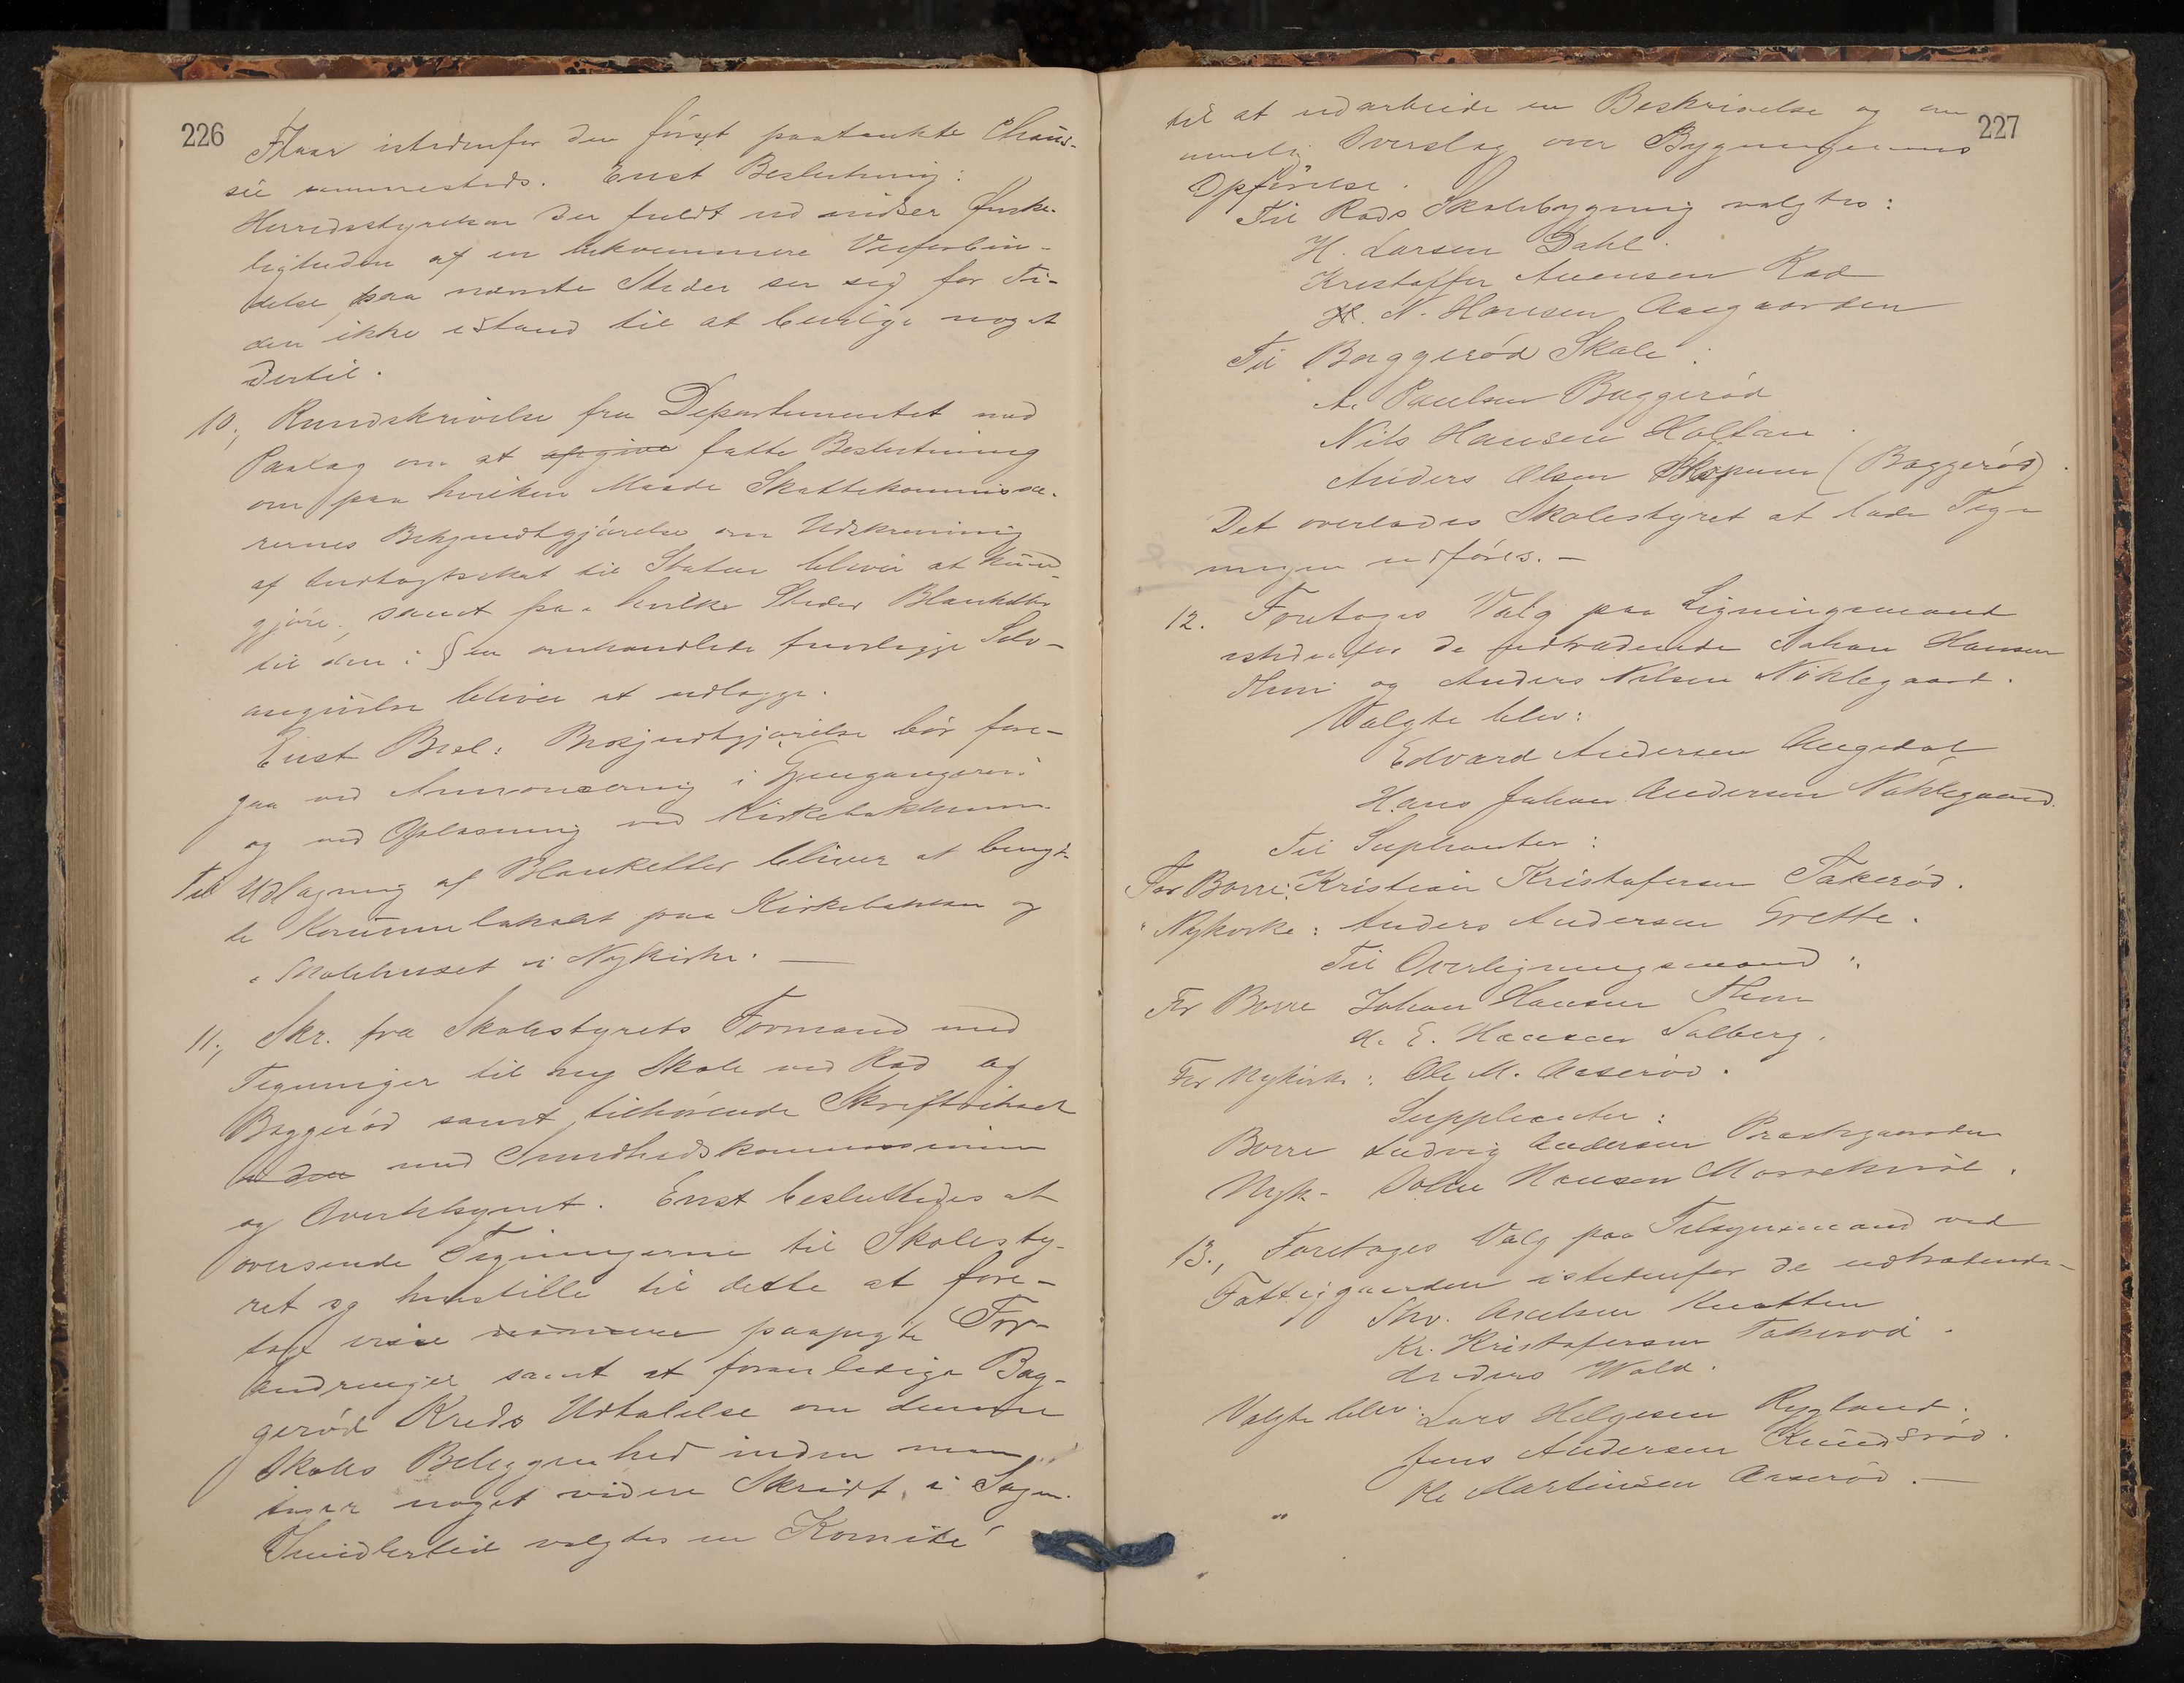 226
istedenfor den först paatænkte Chaus-
sée sammesteds. Enst Beslutning:
Herredsstyrelsen der fuldt ud indser Önske-
ligheden af en bekvemmere Veiforbin-
delse paa nævnte Steder ser sig for Ti-
den ikke istand til at bevilge noget
dertil.
10., Rundskrivelse fra Departementet med
Paalæg om at afgive fatte Beslutning
om paa hvilken Maade Skattekommissæ-
rernes Bekjendtgjörelse om Udskrivning
af Indtægtsskat til Staten bliver at kund-
gjöre, samt paa hvilke Steder Blanketter
til den i § en omhandlede Selv-
angivelse bliver at udlægge.
Enst Besl: Bekjendtgjörelse bör fore-
gaa ved Annoncering i Gjengangeren
og ved Oplæsning ved Kirkebakkerne.
Til Udlægning af Blanketter bliver at benyt-
te Kommunelokalet paa Kirkebakken og
Skolehuset i Nykirke. —
11., Skr. fra Skolestyrets Formand med
Tegninger til ny Skole ved Rød og
Baggeröd samt tilhörende Skriftveksel
med Sundhedskommissionen
og Overtilsynet. Enst besluttedes at
oversende Tegningerne til Skolesty-
ret og henstille til dette at fore-
tage visse paapegte For-
andringer samt at foranledige Bag-
geröd Kreds Udtalelse om denne
Skoles Beliggenhed inden man
tager noget videre Skridt i Sagen.
Imidlertid valgtes en Komite
227
til at udarbeide en Beskrivelse og en
Overslag over Bygningernes
Opförelse.
Til Röds Skolebygning valgtes:
H. Larsen Dahl.
Kristoffer Rød
N. Hansen Aasgaarden
Til Baggeröd Skole:
A. Paulsen Baggeröd
Nils Hansen Holtan.
Anders Olsen Skopum (Baggeröd).
Det overlades Skolestyret at lade Teg-
ningen udföres. —
12. Foretoges Valg paa Ligningsmænd
istedenfor de udtrædende Johan Hansen
Thun og Anders Nilsen Nöklegaard.
Valgte blev:
Edvard Andersen Augedal
Hans Johan Andersen Nöklegaard.
Til Suplianter:
For Borre: Kristian Kristofersen Takeröd.
" Nykirke: Anders Andersen Grette.
Til Overligningsmænd:
For Borre Johan Hansen Thun
H. E. Hansen Solberg.
For Nykirke: Ole M. Aaseröd.
Supplianter:
Borre Ludvig Andersen Præstegaarden
Nyk- Hansen
13., Foretoges Valg paa Tilsynsmænd ved
Fattiggaarden istedenfor de udtrædende
Thv. Axelsen Knatten
Kr. Kristofersen Takeröd.
Anders Wold.
Valgte blev: Lars Helgesen Rygland.
Jens Andersen Knudsröd.
Ole Martinsen Aaseröd. —